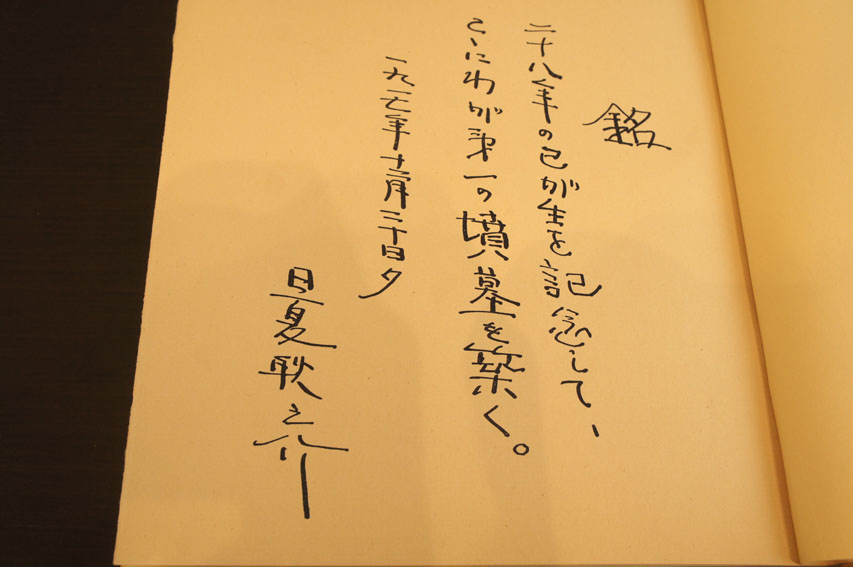 銘
二十八年の己が生を記念して、
こゝにわが第一の墳墓を築く。
一九一七年十二月三十日夕
日夏耿之介